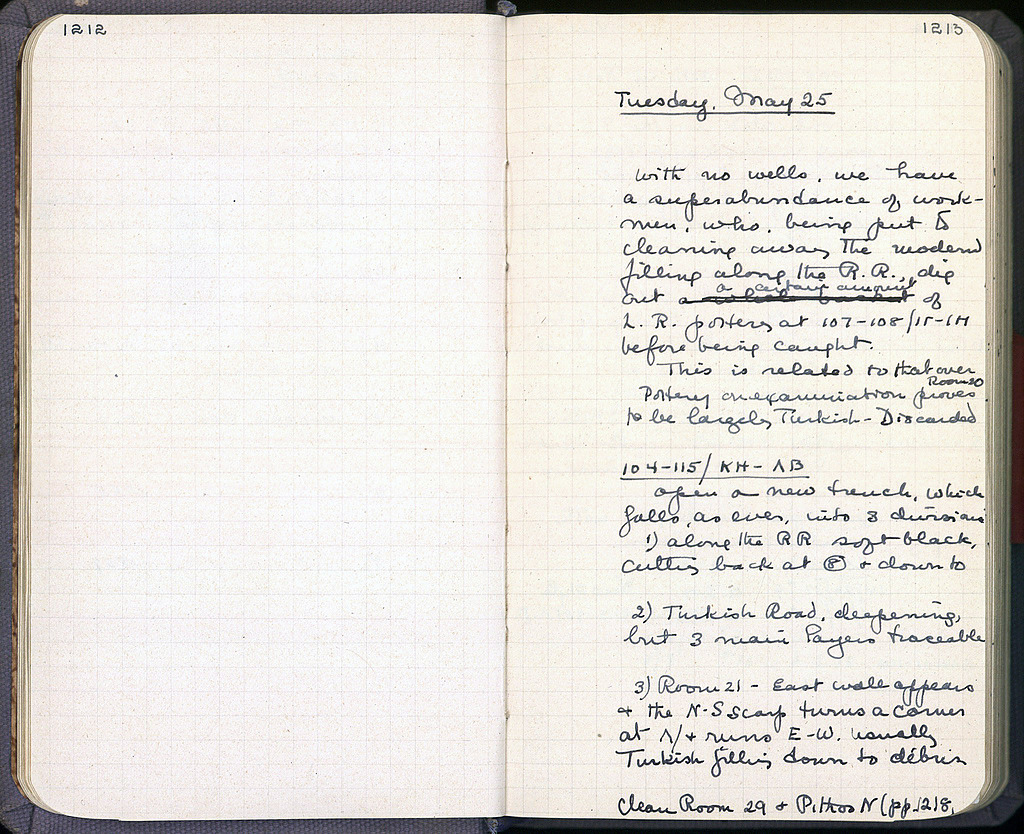 1212
1213
Tuesday, May 25
With no wells, we have
a superabundance of work-
men, who, being put to
cleaning away the modern
filling along the R.R., dig
a certain amount
out of
L. R. pottery at 107-108/IS-IH
before being caught.
This is related to that over
Room 20
Pottery on examination proves
to be largely Turkish - Discarded
104-115/KH-ΛB
open a new trench, which
falls, as ever, into 3 divisions
1) along the RR soft black,
cutting back at ⑧ + down to
2) Turkish Road, deepening,
but 3 main layers traceable
3) Room 21 - East wall appears
+ the N-S scarp turns a corner
at Λ/+ runs E-W. usually
Turkish filling down to débris
Clean Room 29 + Pithos N (pp. 1218,